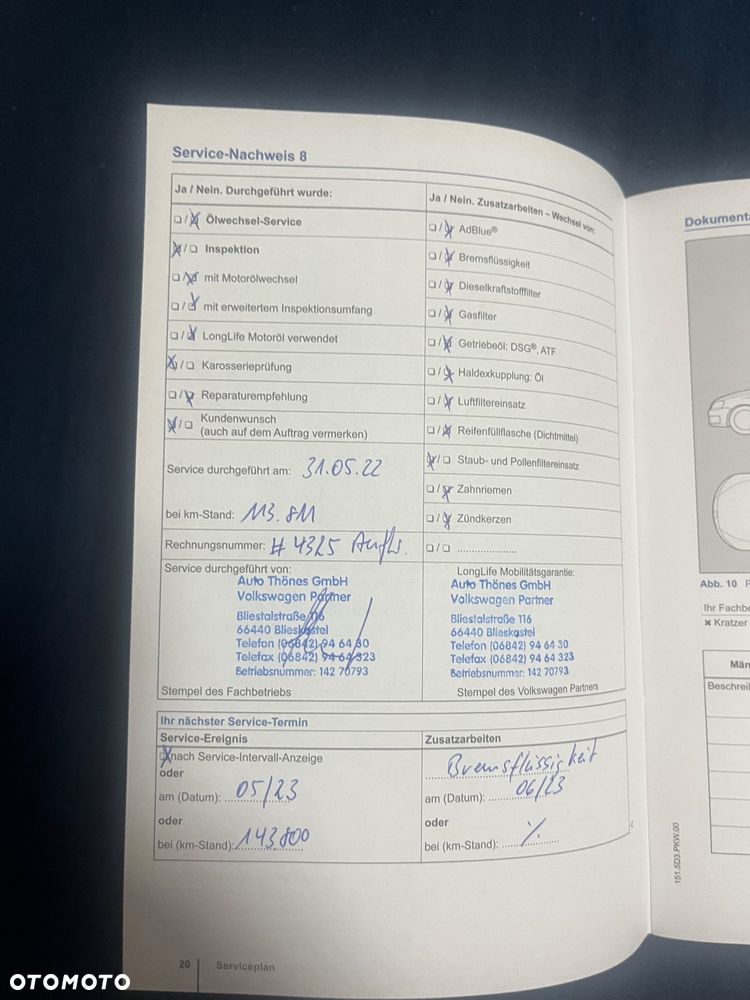 Service-Nachweis 8
Ja / Nein. Durchgeführt wurde:
❑ / ❑ Ölwechsel-Service
❑ / ❑ Inspektion
❑ / ❑ mit Motorölwechsel
❑ / ❑ mit erweitertem Inspektionsumfang
❑ / ❑ LongLife Motoröl verwendet
❑ / ❑ Karosserieprüfung
❑ / ❑ Reparaturempfehlung
❑ / ❑ Kundenwunsch
(auch auf dem Auftrag vermerken)
Service durchgeführt am: 31.05.22
bei km-Stand: 113.811
Rechnungsnummer: # 4325
Ja / Nein. Zusatzarbeiten – Wechsel von:
❑ / ❑ AdBlue®
❑ / ❑ Bremsflüssigkeit
❑ / ❑ Dieselkraftstofffilter
❑ / ❑ Gasfilter
❑ / ❑ Getriebeöl: DSG®, ATF
❑ / ❑ Haldexkupplung: Öl
❑ / ❑ Luftfiltereinsatz
❑ / ❑ Reifenfüllflasche (Dichtmittel)
❑ / ❑ Staub- und Pollenfiltereinsatz
❑ / ❑ Zahnriemen
❑ / ❑ Zündkerzen
❑ / ❑ ......................
Service durchgeführt von:
Auto Thönes GmbH
Volkswagen Partner
Bliestalstraße 116
66440 Blieskastel
Telefon (06842) 94 64 30
Telefax (06842) 94 64 323
Betriebsnummer: 142 70793
Stempel des Fachbetriebs
LongLife Mobilitätsgarantie:
Auto Thönes GmbH
Volkswagen Partner
Bliestalstraße 116
66440 Blieskastel
Telefon (06842) 94 64 30
Telefax (06842) 94 64 323
Betriebsnummer: 142 70793
Stempel des Volkswagen Partners
Ihr nächster Service-Termin
Service-Ereignis
❑ nach Service-Intervall-Anzeige
oder
am (Datum): 05/23
oder
bei (km-Stand): 143.800
Zusatzarbeiten
Bremsflüssigkeit
am (Datum): 06/23
oder
bei (km-Stand): %
20 Serviceplan
151.5D3.PKW.00
Abb. 10
Ihr Fachbe
✖ Kratzer
Män
Beschreib
Dokumenta
OTOMOTO